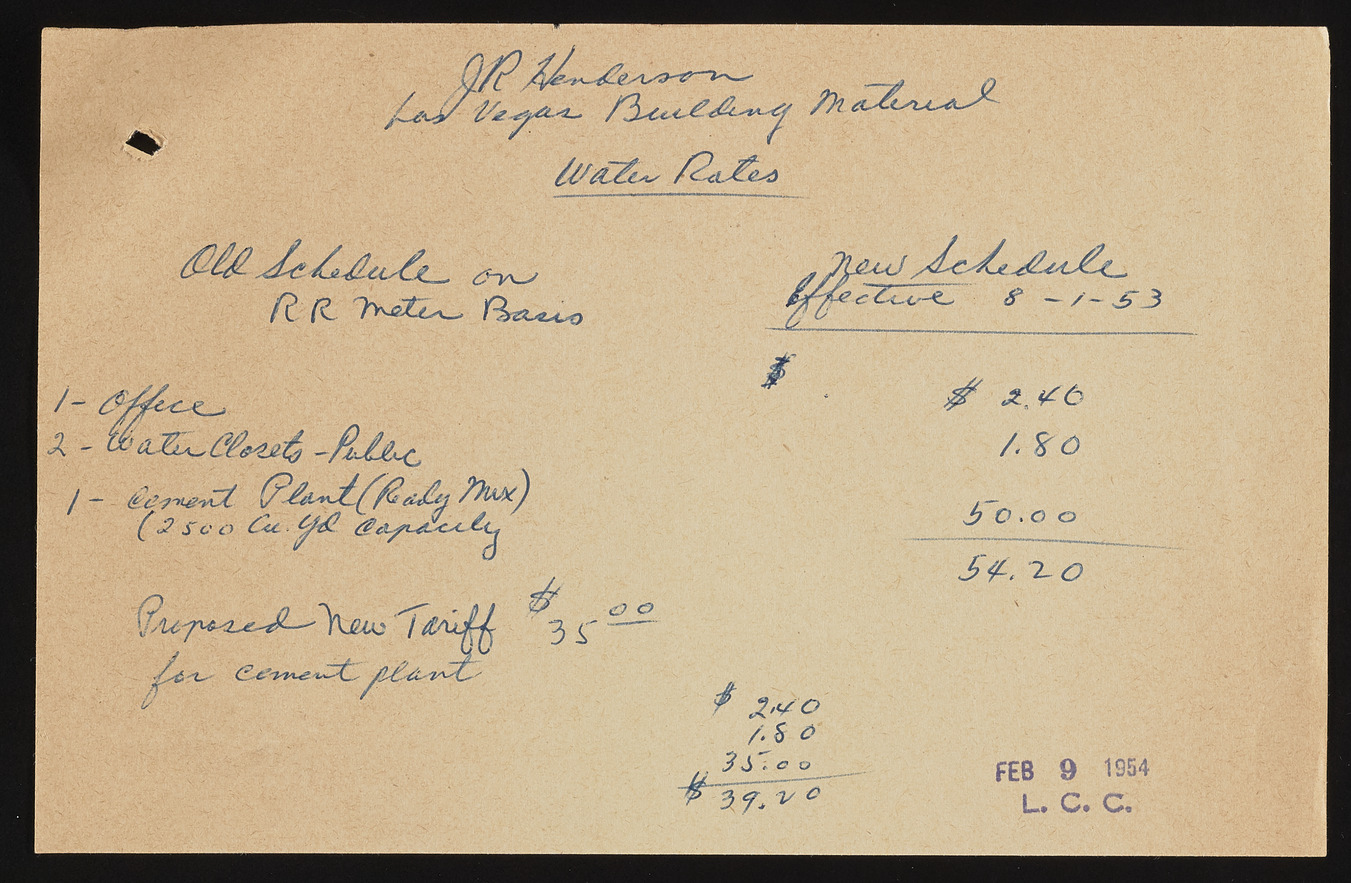 JR Henderson
Las Vegas Building Material
Water Rates
Old Schedule on
RR Meter Basis
New Schedule
Effective 8-1-53
$
1- Office $ 2.40
2- Water Closets - Public 1.80
1- Cement Plant (Ready Mix)
(2500 Cu. Yd Capacity 50.00
54.20
Proposed New Tariff $35 00
for cement plant
$ 2.40
1.80
35.00
$ 39.20
FEB 9 1954
L. C. C.